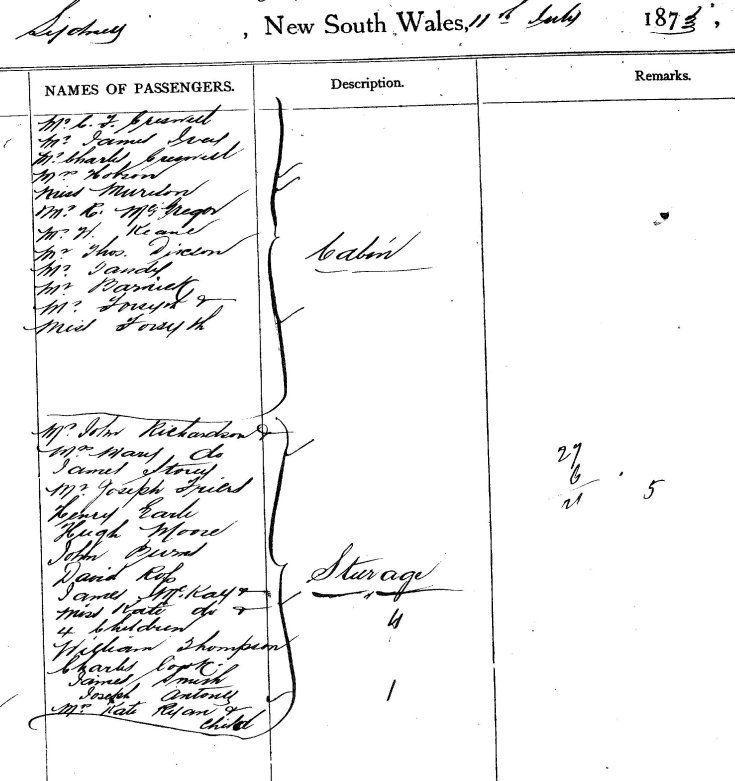 Sydney, New South Wales, 11th July 1873,
NAMES OF PASSENGERS. Description. Remarks.
Mr. C. F. Creswell
Mr. James Ives
Mr. Charles Creswell
Mrs Hobson
Miss Murison
Mr. R. McGregor
Mr. H. Keane
Mr Thos. Dixson
Cabin
Mr. Tandy
Mr Barnick
Mr. Forsyth &
Miss Forsyth
Mr. John Richardson &
Mrs Mary do
James Storey
Mr. Joseph Friers
Henry Earle
Hugh Moore
John Burns
David Ross
James McKay &
Miss Kate do &
4 Children
William Thompson
Charles Cook
James Smith
Joseph Antoney
Mrs Kate Ryan &
Child
Sturage
4
1
27
6
21
5